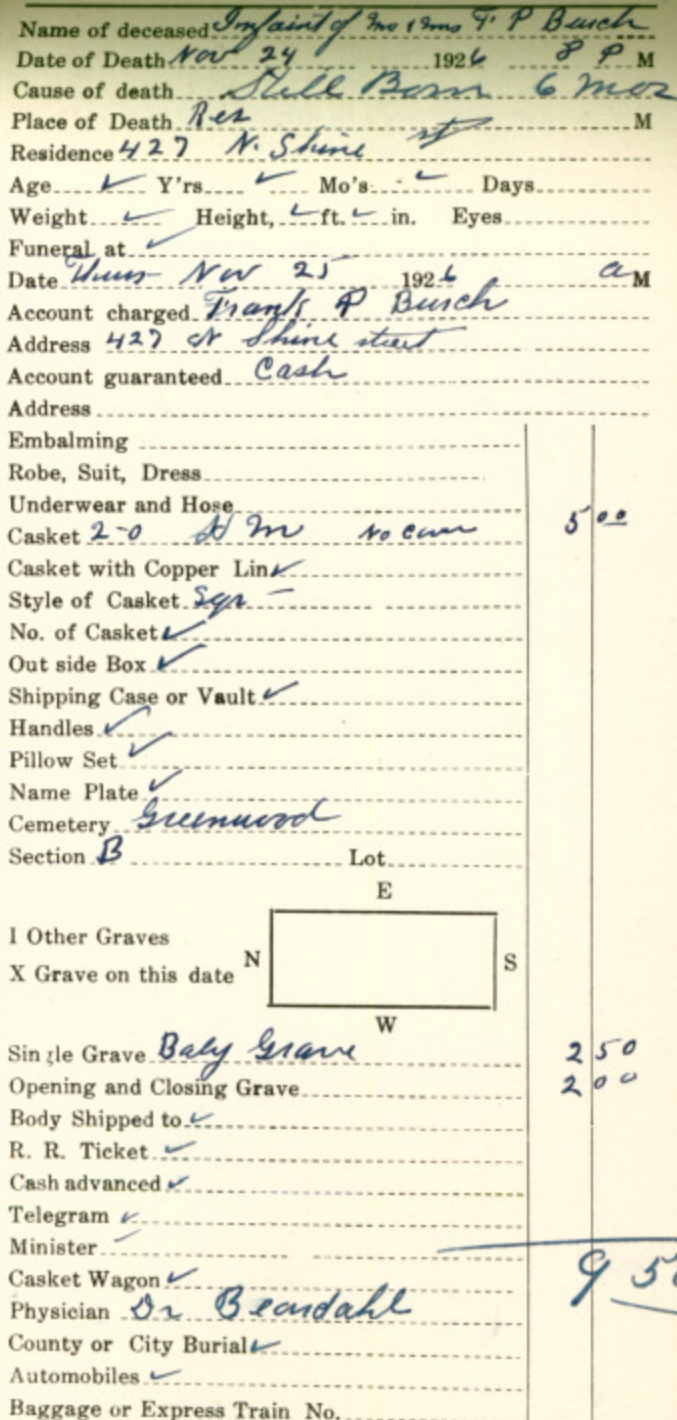 Name of deceased Infaint of Mr & Mrs F. P Busch
Date of Death Nov 24 1926 8 P M
Cause of death Still Born 6 mos
Place of Death Res M
Residence 427 N. Shine st
Age Y'rs Mo's Days
Weight Height, ft. in. Eyes
Funeral at
Date Thurs Nov 25 1926 a M
Account charged Frank P Busch
Address 427 N Shine street
Account guaranteed Cash
Address
Embalming
Robe, Suit, Dress
Underwear and Hose
Casket 2-0 No cover 5 00
Casket with Copper Lin
Style of Casket Sqr
No. of Casket
Out side Box
Shipping Case or Vault
Handles
Pillow Set
Name Plate
Cemetery Greenwood
Section B Lot
E
I Other Graves
X Grave on this date N S
W
Single Grave Baby Grave 2 50
Opening and Closing Grave 2 00
Body Shipped to
R. R. Ticket
Cash advanced
Telegram
Minister
Casket Wagon 9 50
Physician Dr Beardahl
County or City Burial
Automobiles
Baggage or Express Train No.